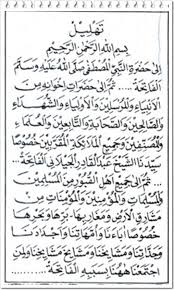 تَهْلِيْل
بِسْمِ اللهِ الرَّحْمٰنِ الرَّحِيْمِ
اِلَى حَضْرَةِ النَّبِيِّ الْمُصْطَفَى صَلَّى اللهُ عَلَيْهِ وَسَلَّمَ
الفَاتِحَةْ .... ثُمَّ اِلَى حَضْرَاتِ اِخْوَانِهِ مِنَ
الْاَنْبِيَاءِ وَالْمُرْسَلِيْنَ وَالْاَوْلِيَاءِ وَالشُّهَدَاءِ
وَالصَّالِحِيْنَ وَالصَّحَابَةِ وَالتَّابِعِيْنَ وَالْعُلَمَاءِ
وَالْمُصَنِّفِيْنَ وَجَمِيْعِ الْمَلَائِكَةِ الْمُقَرَّبِيْنَ خُصُوْصًا
سَيِّدِنَا الشَّيْخِ عَبْدِ الْقَادِرِ الْجَيْلَانِى الْفَاتِحَةْ ...
... ثُمَّ اِلَى جَمِيْعِ اَهْلِ الْقُبُوْرِ مِنَ الْمُسْلِمِيْنَ
وَالْمُسْلِمَاتِ وَالْمُؤْمِنِيْنَ وَالْمُؤْمِنَاتِ مِنْ
مَشَارِقِ الْاَرْضِ وَمَغَارِبِهَا بَرِّهَا وَبَحْرِهَا
خُصُوْصًا اٰبَاءَنَا وَاُمَّهَاتِنَا وَاَجْدَادَنَا
وَجَدَّاتِنَا وَمَشَايِخَنَا وَمَشَايِخَ مَشَايِخِنَا وَلِمَنِ
اجْتَمَعْنَا هٰهُنَا بِسَبَبِهِ الْفَاتِحَةْ ...........